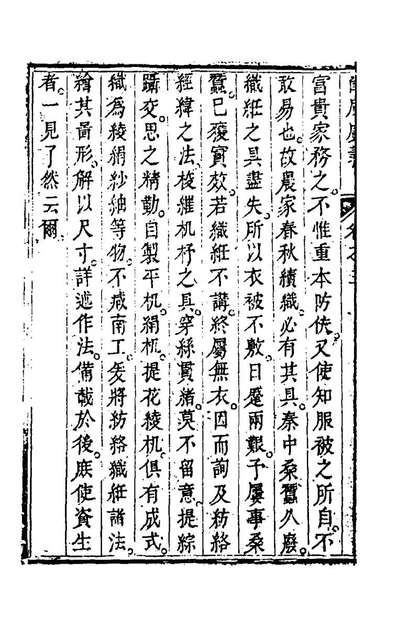 富貴家務之。不惟重本防佚。又使知服被之所自。不
敢易也。故農家春秋績織。必有其具。秦中桑蠶久廢。
織絍之具盡失。所以衣被不敷。日屢兩艱。予屢事桑
蠶。已獲實效。若織絍不講。終屬無衣。因而詢及紡絡
經緯之法。梭維机杼之具。穿絲貫緒。莫不留意。提綜
躡交。思之精勤。自製平机。絹机。提花綾机。俱有成式。
織為綾絹紗紬等物。不減南工。爰將紡絡織絍諸法。
繪其圖形。解以尺寸。詳述作法。備載於後。庶使資生
者。一見了然云爾